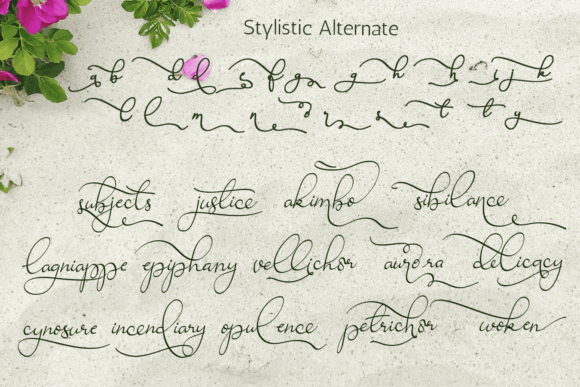 Stylistic Alternate
a b d d s f g a g h h i j k
l l m n e r s s e t t t y
subjects justice akimbo sibilance
lagniappe epiphany vellichor aurora delicacy
cynosure incendiary opulence petrichor woken